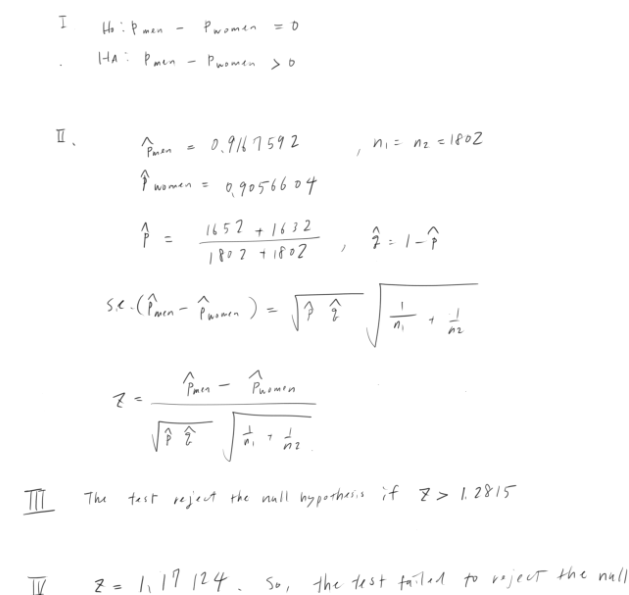 I H₀ : P men - P women = 0
HA : P men - P women > 0
II. p̂men = 0.9167592 , n₁ = n₂ = 1802
p̂ women = 0.9056604
p̂ = (1652 + 1632) / (1802 + 1802) , q̂ = 1 - p̂
s.e. (p̂men - p̂women) = √(p̂ q̂) √(1/n₁ + 1/n₂)
Z = (p̂men - p̂women) / (√(p̂ q̂) √(1/n₁ + 1/n₂))
III The test reject the null hypothesis if Z > 1.2815
IV Z = 1.17124. So, the test failed to reject the null